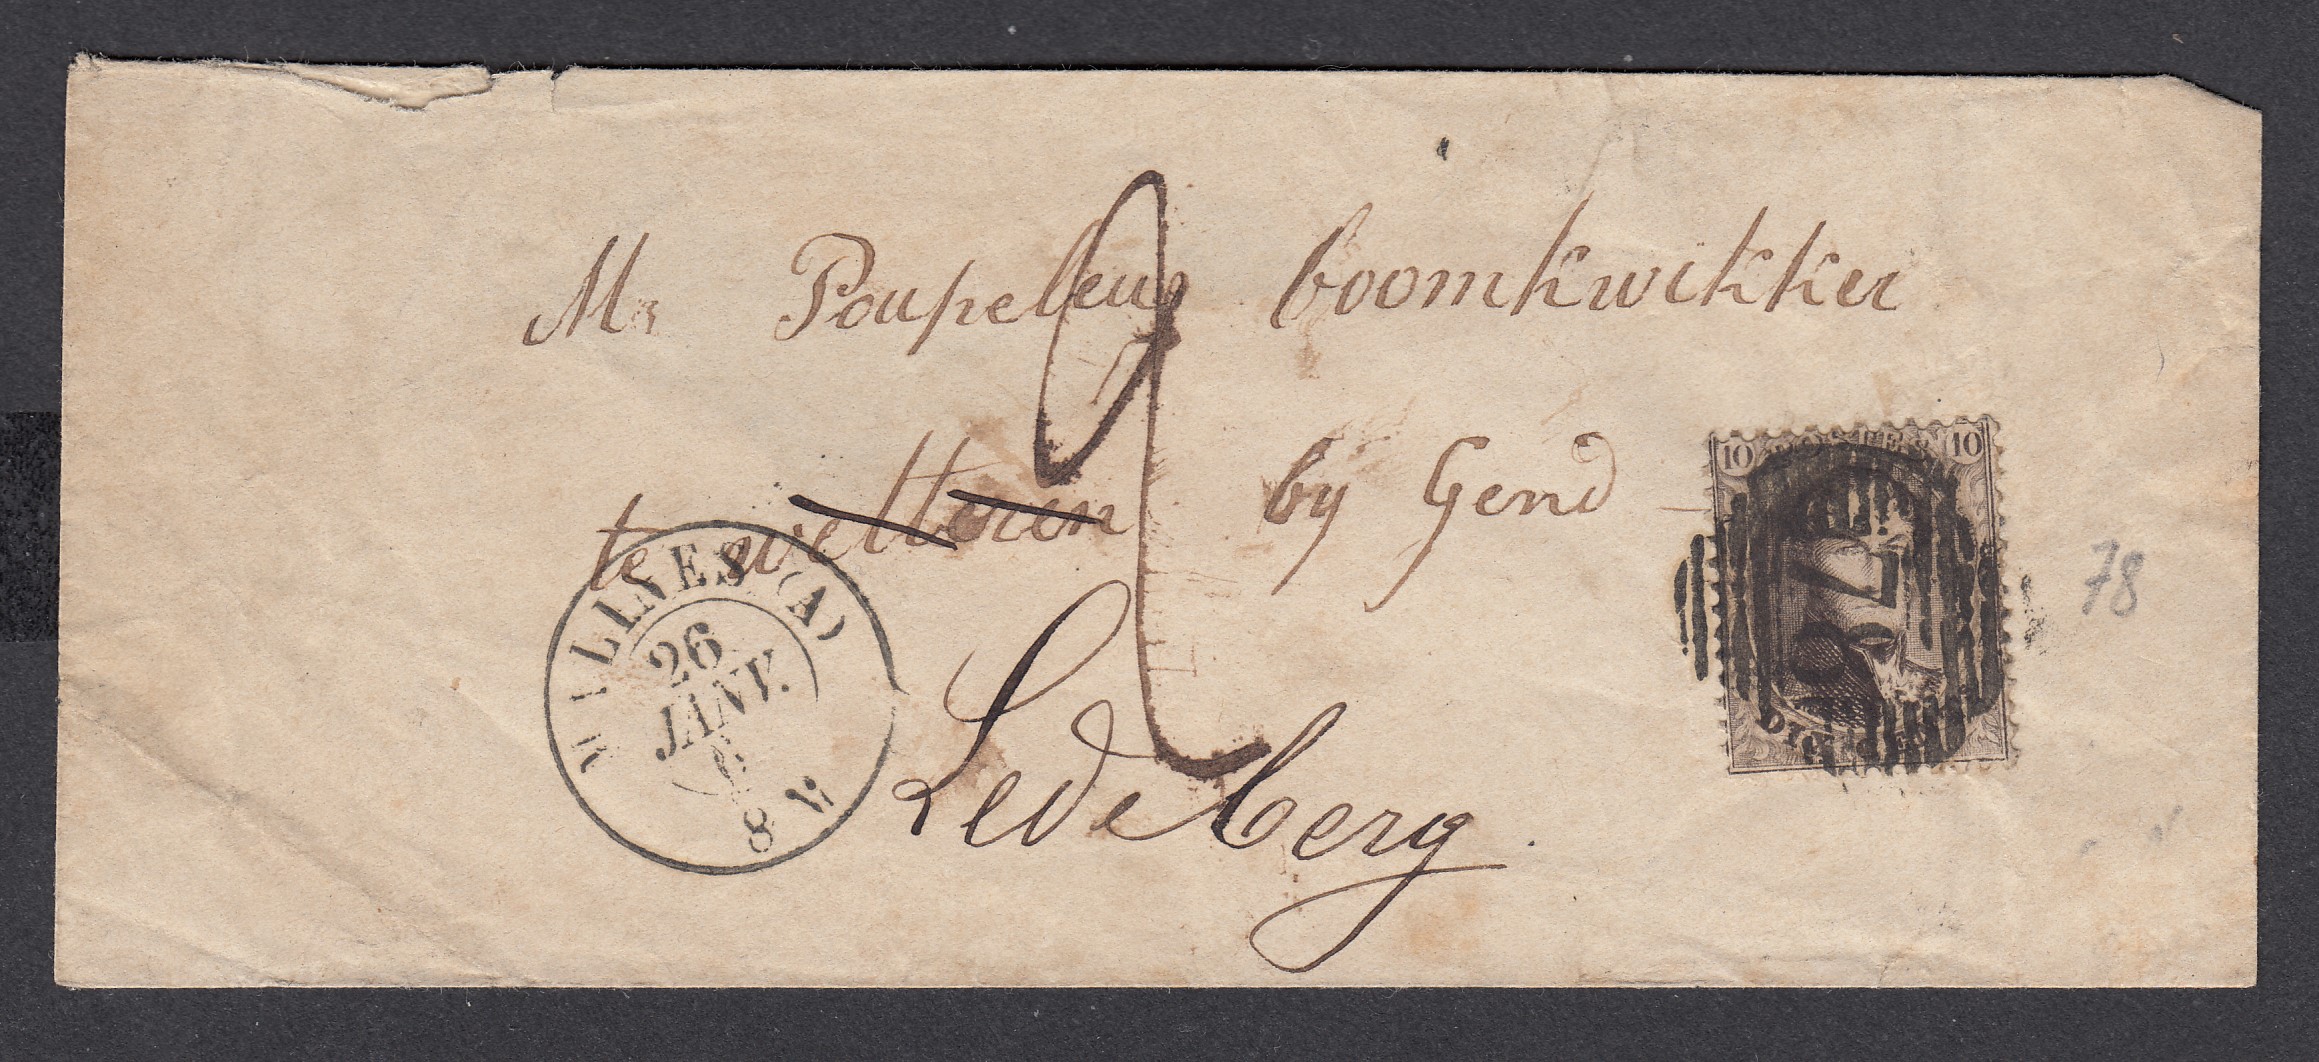 Mr Poupeleur boomkwikker
te wetteren by Gend
Ledeberg.
MALINES (A)
26
JANV.
8 M
10 POSTES 10
78
78